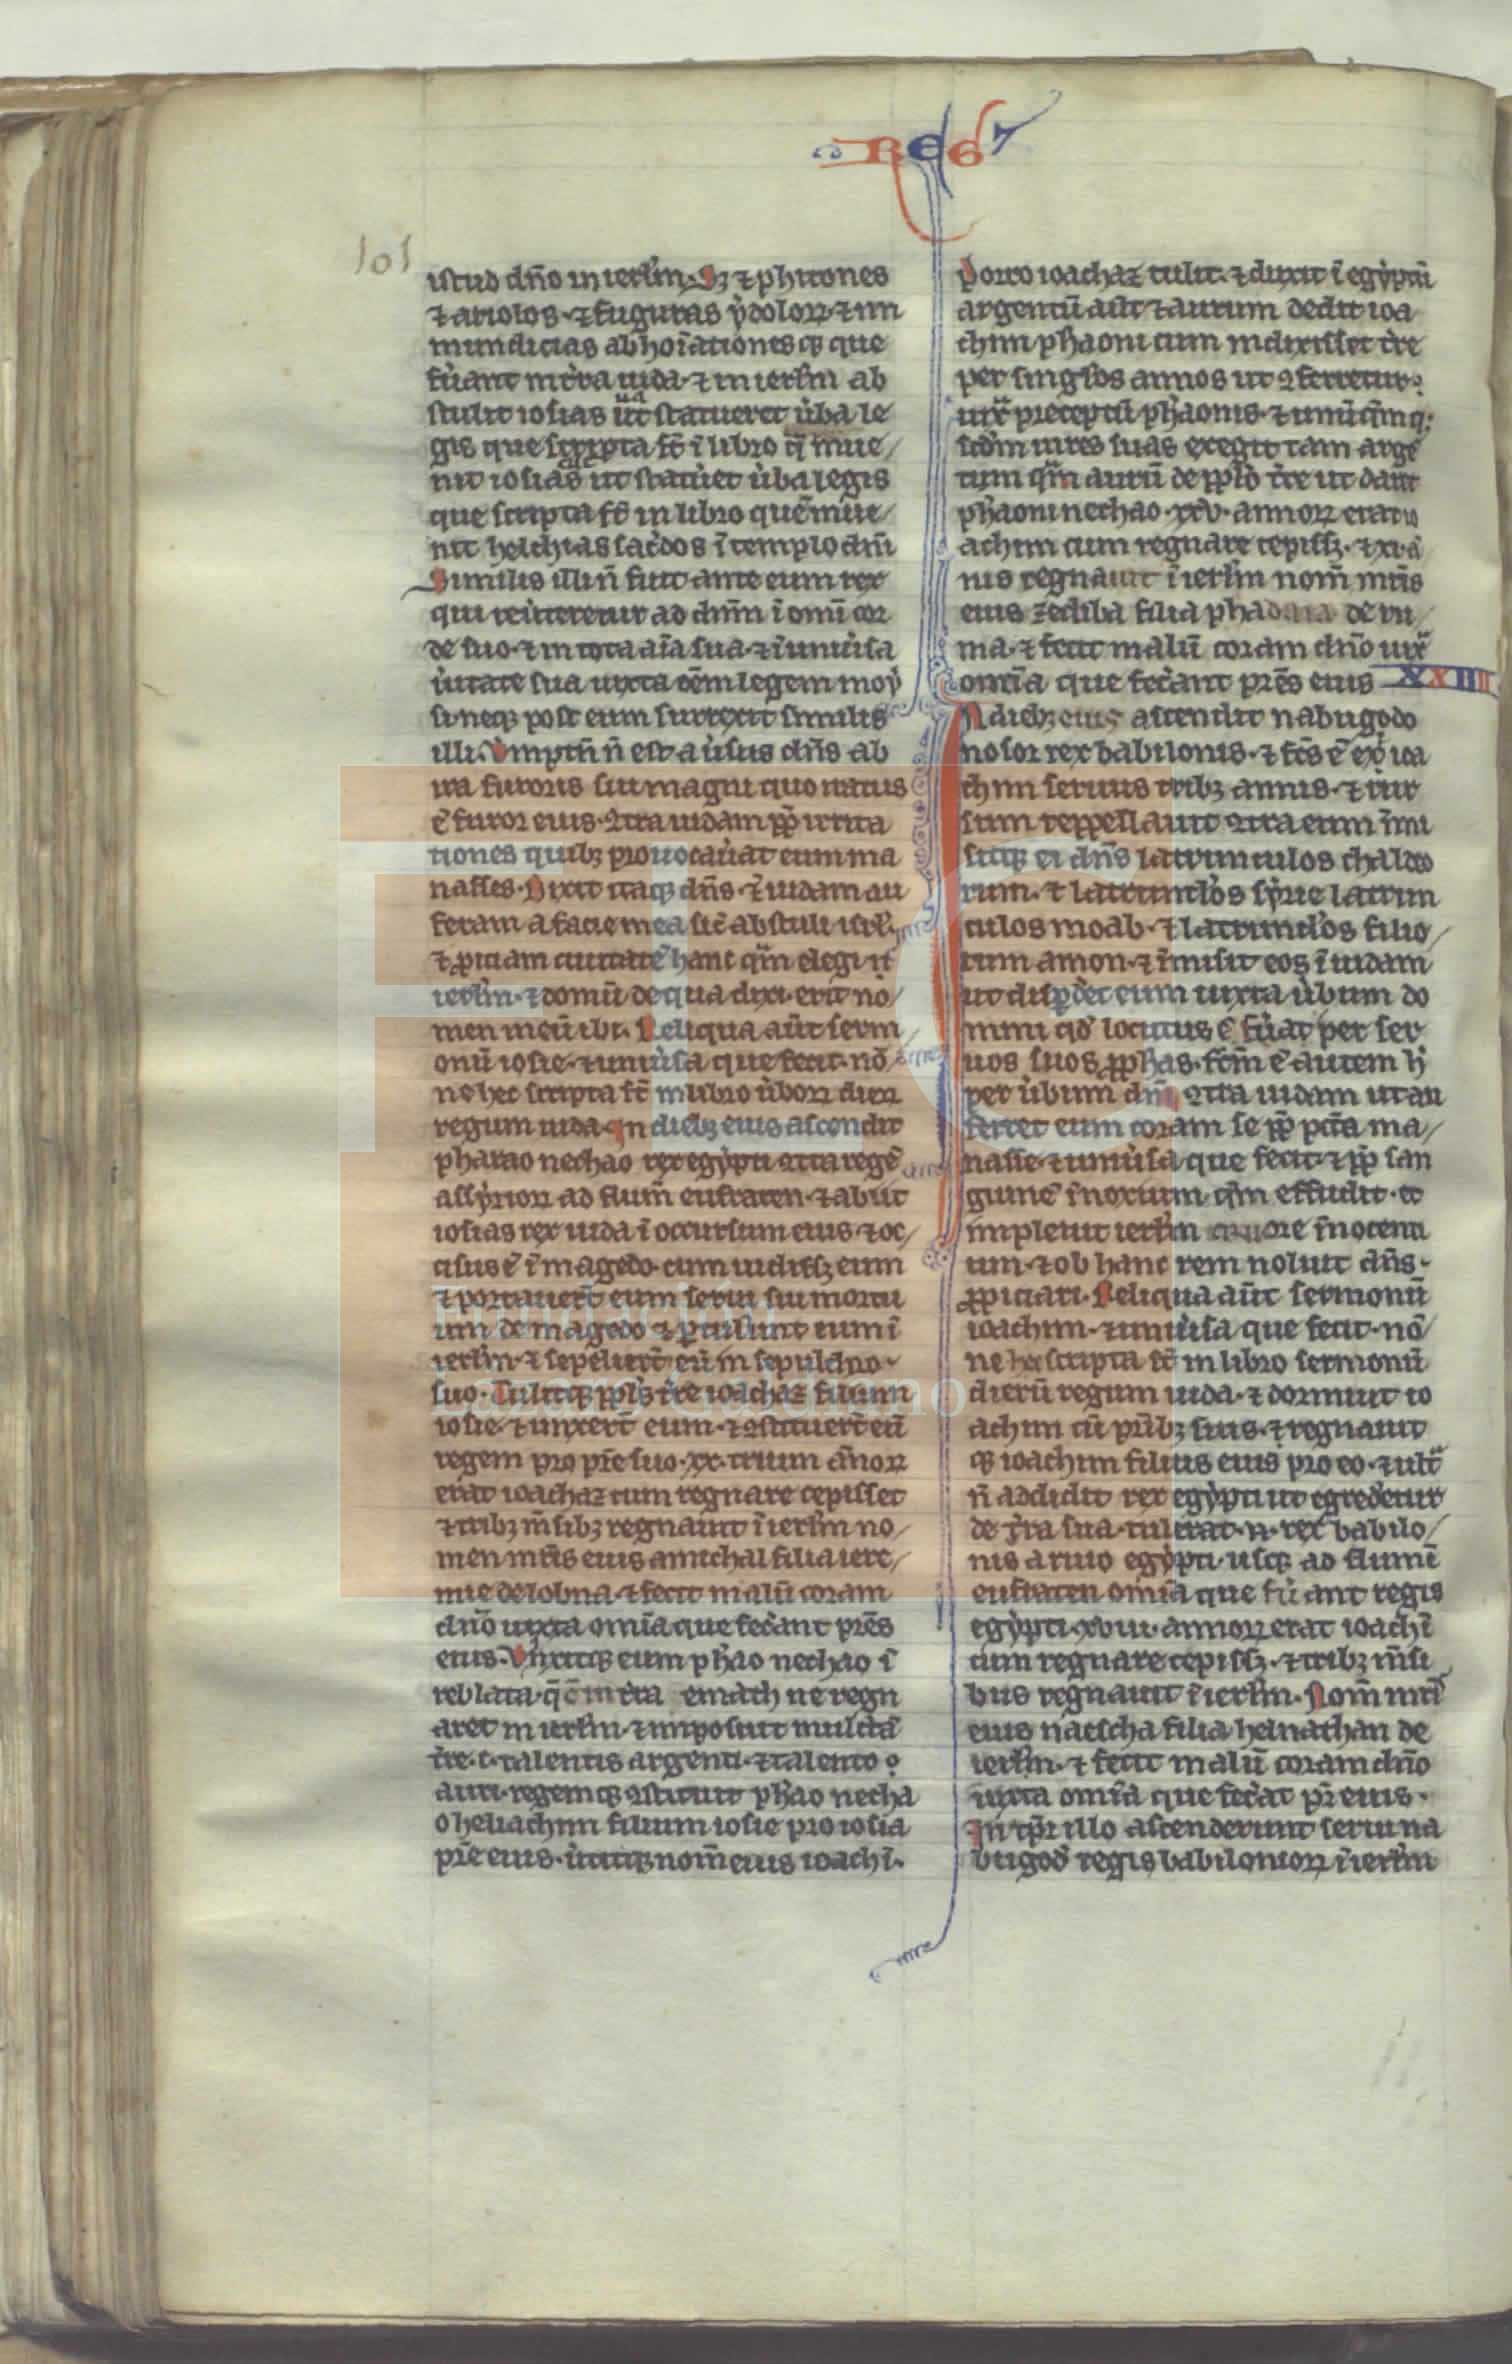 REG
101
istud dño in ierłm. Sȝ ⁊ phitones
⁊ ariolos ⁊ figuras ydoloꝝ ⁊ im
mundicias abhoīationesqꝫ que
fuant in tr̄a iuda ⁊ in ierłm ab
stulit iosias ut statueret ủba le
gis que scripta st̄ ī libro q̄ īnue
nit iosias ut statuet ủba legis
que scripta st̄ in libro quē inue
nit helchias sacdos ī templo dñi
Similis illi ñ fuit ante eum rex
qui reủteretur ad dñm ī omī cor
de suo ⁊ in tota aīa sua ⁊ ī uniủsa
ủtute sua iuxta oēm legem moy
si neqꝫ post eum surrexit similis
illi. Verūptn̄ ñ est aủsus dñs ab
ira furoris sui magni quo iratus
ē furor eius ꝯtra iudam ꝓpt̄ irrita
tiones quibꝫ prouocauat eum ma
nasses. Dixit itaqꝫ dñs ⁊ iudam au
feram a facie mea sic abstuli isrł
⁊ ꝓiciam ciuitatē hanc qͣm elegi
ierłm ⁊ domū de qua dixi erit no
men meū ibi. Reliqua aūt serm
onū iosie ⁊ uniủsa que fecit nō
ne hec scripta st̄ in libro ủboꝝ dieꝝ
regum iuda. In diebꝫ eius ascendit
pharao nechao rex egypti ꝯtra regē
assyrioꝝ ad flum̄ eufraten ⁊ abiit
iosias rex iuda ī occursum eius ⁊ oc
cisus ē ī magedo cum uidissꝫ eum
⁊ portauert̄ eum serui sui mortu
um de magedo ⁊ ꝑtulunt eum ī
ierłm ⁊ sepeliert̄ eū in sepulchro
suo. Tulitqꝫ ppłs tr̄e ioachaz filium
iosie ⁊ unxert̄ eum ⁊ ꝯstituert̄ eū
regem pro pr̄e suo. xx. trium ānoꝝ
erat ioachaz cum regnare cepisset
⁊ tribꝫ m̄sibꝫ regnauit ī ierłm no
men mr̄is eius amithal filia iere
mie de lobna ⁊ fecit malū coram
dño iuxta omīa que fecant pr̄es
eius. Vinxitqꝫ eum phao nechao ī
reblata q̄ ē in tr̄a emath ne regn
aret in ierłm ⁊ imposuit mulctā
tr̄e. c. talentis argenti ⁊ talento
auri. regemqꝫ ꝯstituit phao necha
o heliachim filium iosie pro iosia
pr̄e eius ủtitqꝫ nom̄ eius ioachī.
Porro ioachaz tulit ⁊ duxit ī egyptū
argentū aūt ⁊ aurum dedit ioa
chim phaoni cum indixisset tr̄e
per singłos annos ut ꝯferretur
iuxͣ preceptū phaonis ⁊ unūq̄mqꝫ
scdm uires suas exegit tam argē
tum qͣm aurū de ppło tr̄e ut daret
phaoni nechao. xxv. annoꝝ erat io
achim cum regnare cepissꝫ ⁊ xi. ā
nis regnauit ī ierłm nom̄ mr̄is
eius zediba filia phadaia de ru
ma ⁊ fecit malū coram dño iuxͣ
omīa que fecant pr̄es eius XXIIII
In diebꝫ eius ascendit nabugodo
nosor rex babilonis ⁊ fc̄s ē ei ioa
chim seruus tribꝫ annis ⁊ rur
sum reppellauit ꝯtra eum īmi
sitqꝫ ei dñs latrunculos chaldeo
rum ⁊ latruncłos syrie latrun
culos moab ⁊ latruncłos filio
rum amon ⁊ īmisit eos ī iudam
ut disꝑdet eum iuxta ủbum do
mini qd locutus ē fuat per ser
uos suos ꝓphas. fc̄m ē autem h
per ủbum dñi ꝯtra iudam ut au
ferret eum coram se ꝓpt̄ pct̄a ma
nasse ⁊ uniủsa que fecit ⁊ ꝓpt̄ san
guinē īnoxium qͣm effudit et
impleuit ierłm cruore īnocenti
um ⁊ ob hanc rem noluit dñs
ꝓpiciari. Reliqua aūt sermonū
ioachim ⁊ uniủsa que fecit nō
ne hec scripta st̄ in libro sermonū
dierū regum iuda ⁊ dormiuit io
achim cū pr̄ibꝫ suis ⁊ regnauit
qꝫ ioachim filius eius pro eo ⁊ ultͣ
ñ addidit rex egypti ut egredetur
de tr̄a sua tulerat .n. rex babilo
nis a riuo egypti usqꝫ ad flumē
eufraten omīa que fuant regis
egypti. xviii. annoꝝ erat ioachī
cum regnare cepissꝫ ⁊ tribꝫ m̄si
bus regnauit ī ierłm. Nom̄ mr̄is
eius naescha filia helnathan de
ierłm ⁊ fecit malū coram dño
iuxta omīa que fecat pr̄ eius.
In tp̄r illo ascenderunt serui na
bugod regis babilonioꝝ ī ierłm